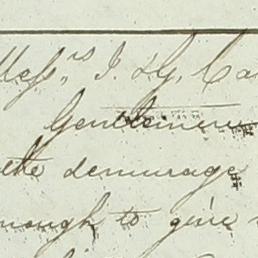 Mess.rs J. & G. Ca
Gentlemen
the demurage
nough to give